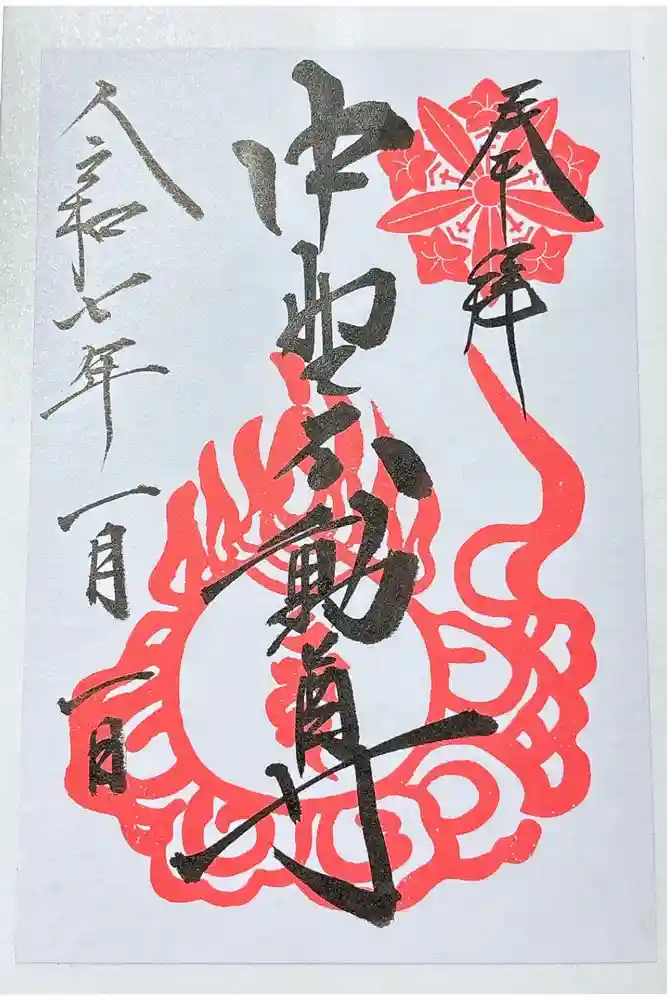 奉拝
中野不動尊
令和七年一月一日